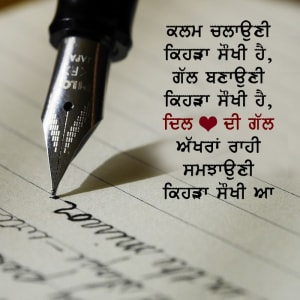 ਕਲਮ ਚਲਾਉਣੀ
ਕਿਹੜਾ ਸੌਖੀ ਹੈ,
ਗੱਲ ਬਣਾਉਣੀ
ਕਿਹੜਾ ਸੌਖੀ ਹੈ,
ਦਿਲ ❤ ਦੀ ਗੱਲ
ਅੱਖਰਾਂ ਰਾਹੀ
ਸਮਝਾਉਣੀ
ਕਿਹੜਾ ਸੌਖੀ ਆ
JAPA